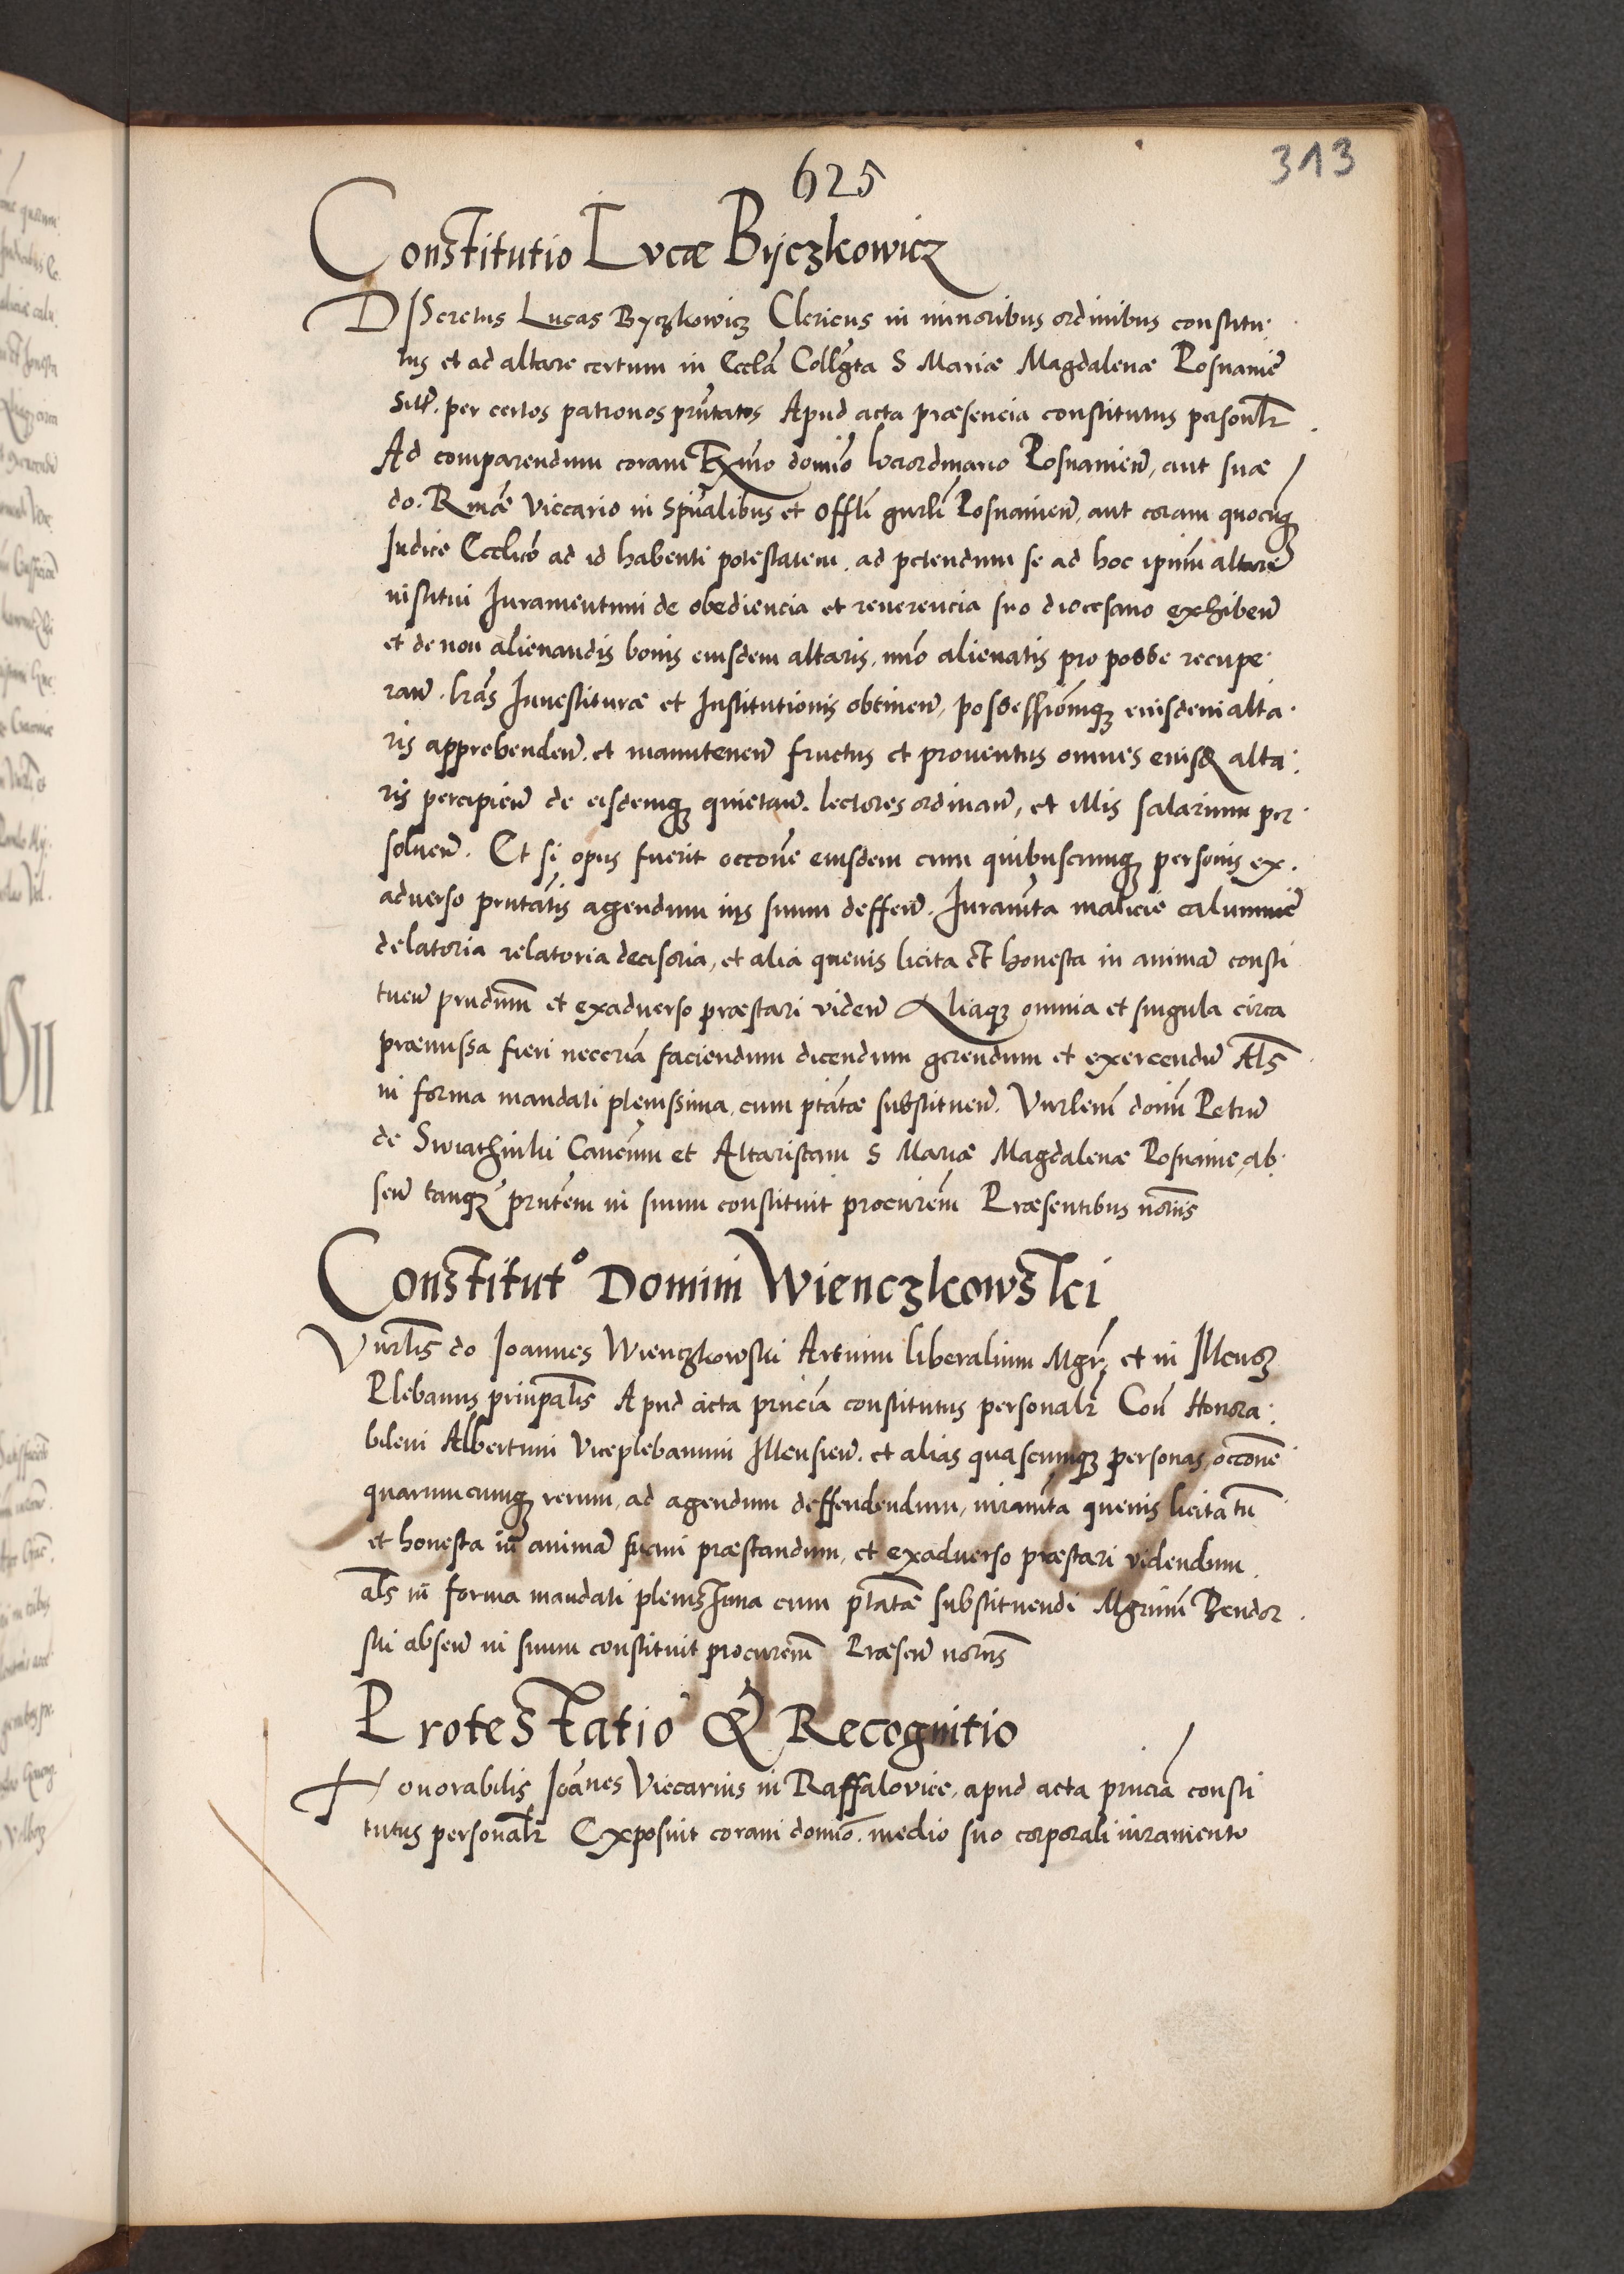 625
313
Constitutio Lucæ Byczkowicz
Discretus Lucas Byczkowicz Clericus in minoribus ordinibus constitu:
tus et ad altare certum in Eccla Collgta S Mariæ Magdalenæ Posnanien
Situ. per certos patronos pñtatus Apud acta præsencia constitutus personlr
Ad comparendum coram Eximo domino loci ordinario Posnanien, aut suæ
do. Rmæ Viccario in Spũalibus et Offli gñrli Posnanien, aut coram quocũq
Iudice Ecclico ad id habenti potestatem, ad petendum se ad hoc ipsum altare
institui Iuramentum de obediencia et reverencia suo diocesano exhiben
et de non alienandis bonis eiusdem altaris, imo alienatis pro posse recupe:
ran. lras Investituræ et Institutionis obtinen, possessionemq eiusdem alta:
ris apprehenden. et manutenen fructus et proventus omnes eiusd alta:
ris percipien de eisdemq quietan. lectores ordinan, et illis salarium per:
solven. Et si opus fuerit occone eiusdem cum quibuscumq personis ex.
adverso pñtatis agendum ius suum deffen. Iuramta malicie calumnie
delatoria relatoria decisoria, et alia quevis licita et honesta in animã consti
tuen prestandum et exadverso præstari viden Aliaq omnia et singula circa
præmissa fieri necceria faciendum dicendum gerendum et exercendũ Als
in forma mandati plenissima, cum ptate substituen. Vnrlem donũ Petrũ
de Swiathniki Canonicum et Altaristam S Mariæ Magdalenæ Posnanie, ab:
sen tanq pñtem in suum constituit procurem Præsentibus notariis
Constitutº Domini Wienczkowski
Vnrlis do Ioannes Wienczkowski Artium liberalium Mgr, et in Illensz
Plebanus principalis Apud acta pñcia constitutus personalr Con Honora:
bilem Albertum Viceplebanum Illensien. et alias quascumq personas, occone
quarumcumq rerum, ad agendum deffendendum, iuramta quevis licita tñ
et honesta in animã suam præstandum, et exadverso præstari videndum
als in forma mandati plenissima cum ptate substituendi Mgrum Bendor
ski absen in suum constituit procurem Præsen notris
Protestatio & Recognitio
Honorabilis Ioannes Viccarius in Raffalovice, apud acta pñcia consti
tutus personalr Exposuit coram domino. medio suo corporali iuramento